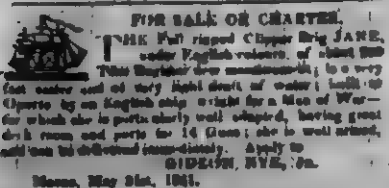 FOR SALE OR CHARTER,
THE Full rigged Clipper Brig JANE,
under English colours, of
Tons Register new measurement; is a very
fast sailer and of very light draft of water; built at
Oporto by an English for a Man of War—
for which she is particularly well adapted, having great
deck room and ports for 14 Guns; she is well armed,
and can be delivered immediately. Apply to
GIDEON NYE, Jr.
Macao, May 21st, 1841.